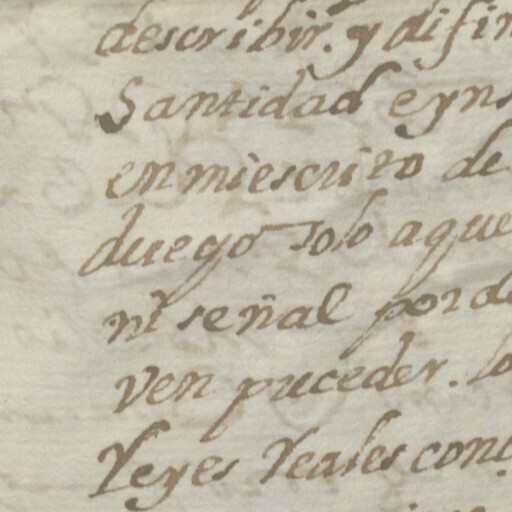 describir. y difin
Santidad e yns
en mi escrito de
duego solo aque
nl señal por d
ven puceder. lo
Leyes Reales con